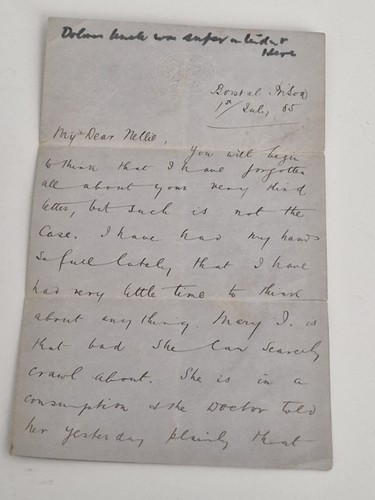 Uncle was superintindat
Here
Borstal Prison
1st July, 85
My Dear Nellie,
You will begin
to think that I have forgotten
all about your very kind
letter, but such is not the
Case. I have had my hands
so full lately that I have
had very little time to think
about any thing. Mary J. is
that bad she can scarcely
crawl about. She is in a
consumption & the Doctor told
her yesterday plainly that